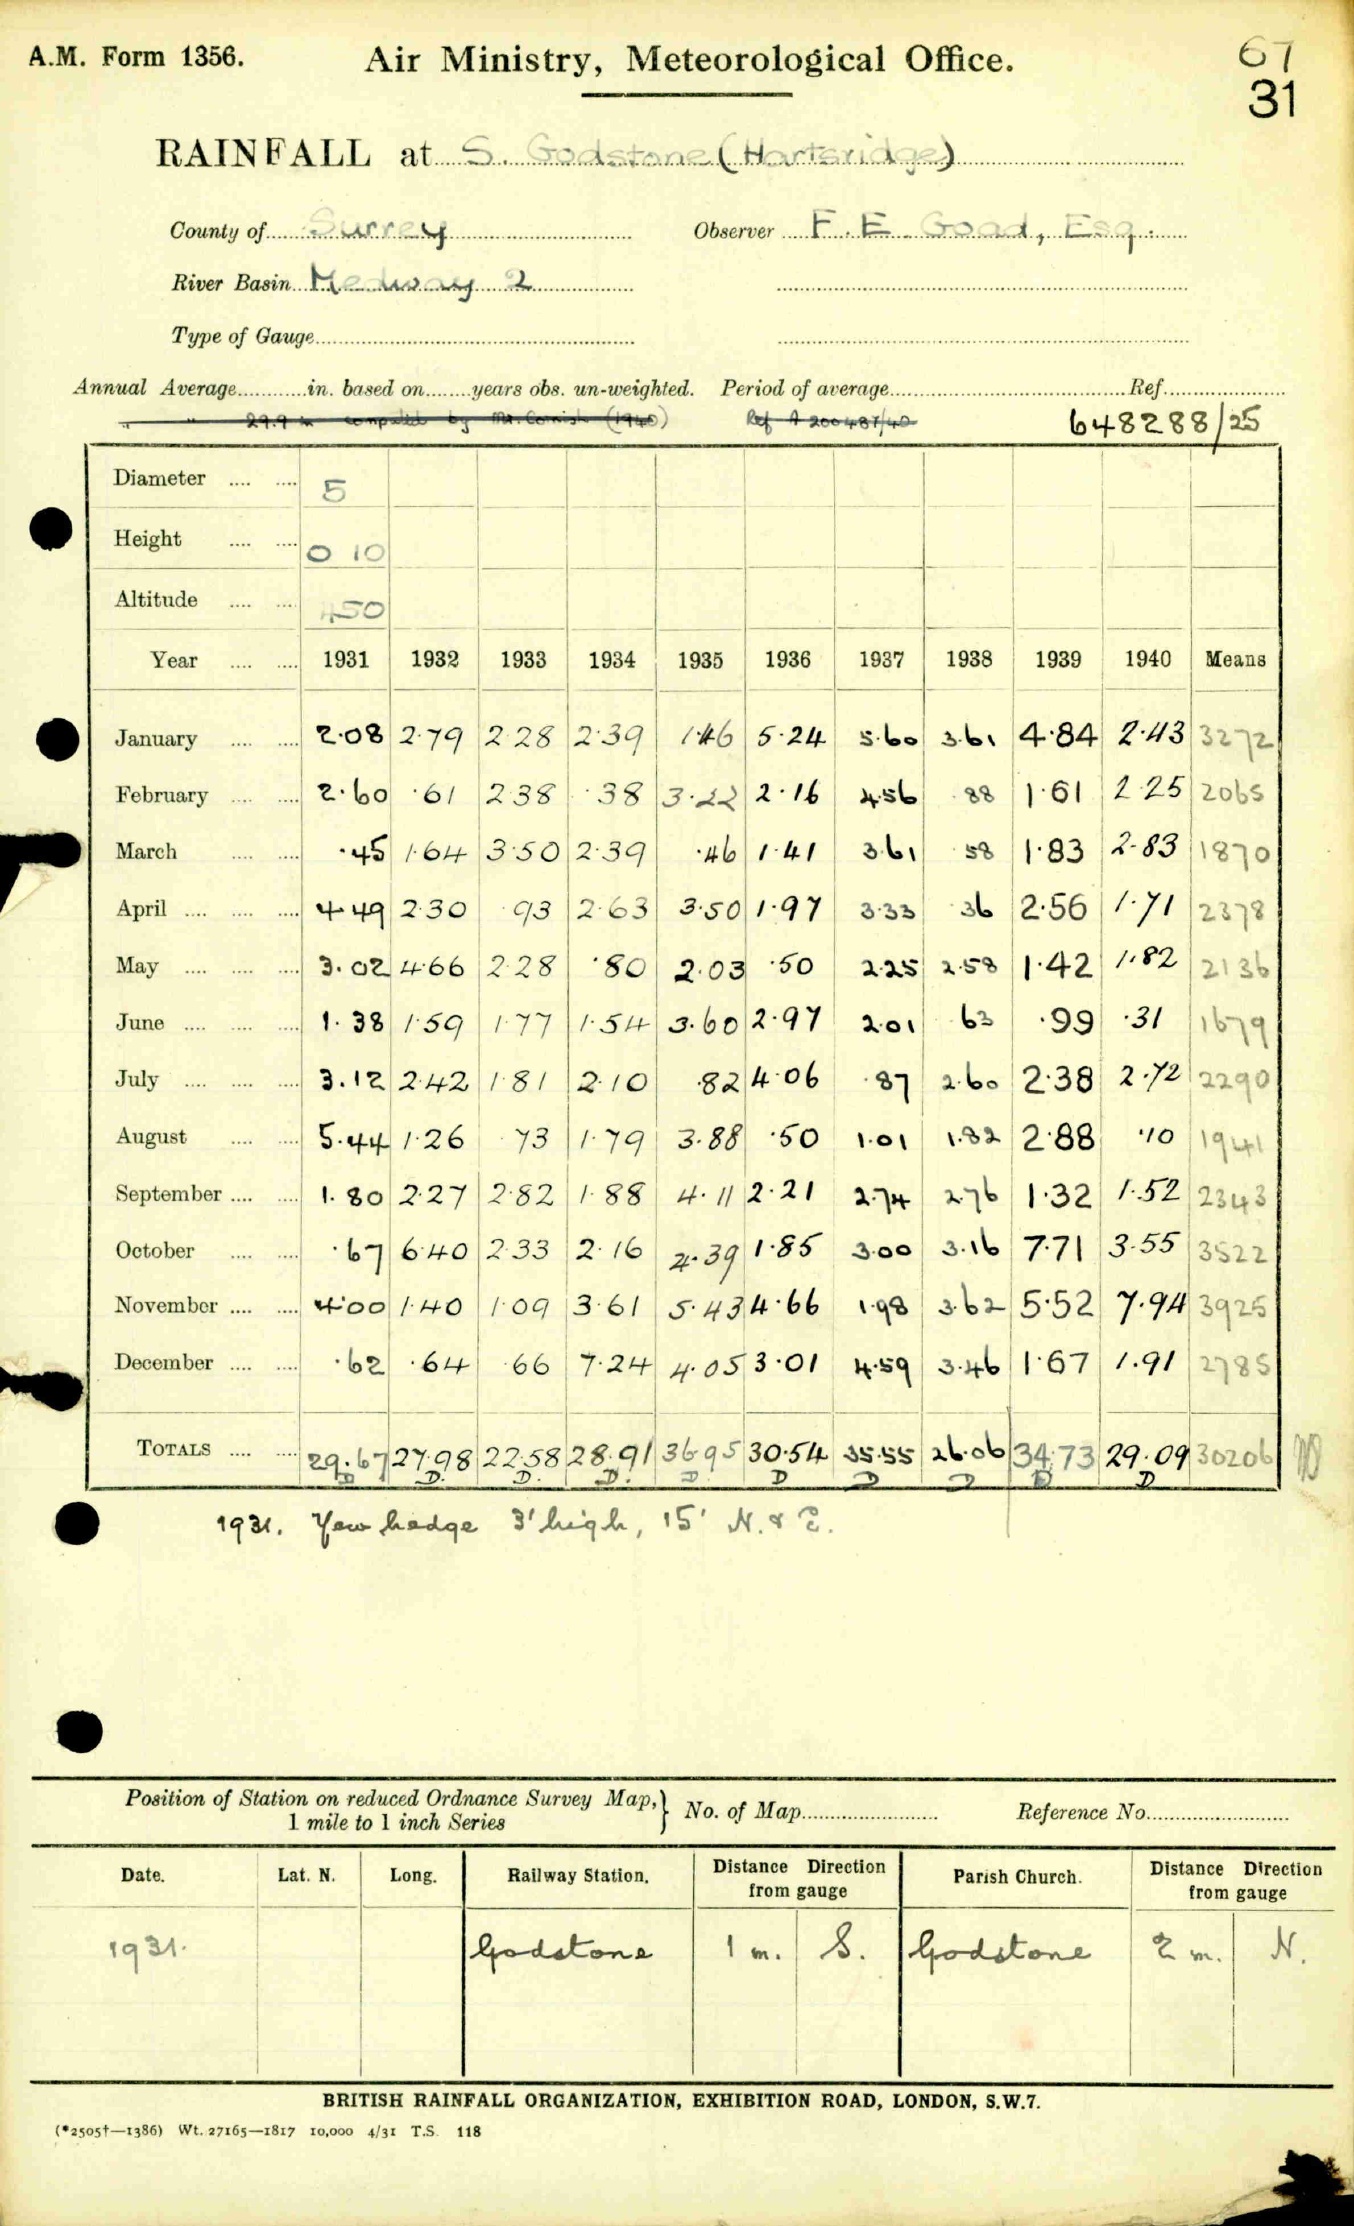 A.M. Form 1356. Air Ministry, Meteorological Office. 67
31
RAINFALL at S. Godstone (Hartsridge)
County of Surrey Observer F. E. Goad, Esq.
River Basin Medway 2
Type of Gauge
Annual Average in. based on years obs. un-weighted. Period of average Ref.
" " 29.9 in compiled by Mr. Cornish (1940) Ref A 200487/40 648288/25
Diameter 5
Height 0 10
Altitude 450
Year 1931 1932 1933 1934 1935 1936 1937 1938 1939 1940 Means
January 2·08 2·79 2 28 2·39 1·46 5·24 5·60 3·61 4·84 2·43 3272
February 2·60 ·61 2 38 ·38 3·22 2·16 4·56 88 1·61 2 25 2065
March ·45 1·64 3·50 2·39 ·46 1·41 3·61 58 1·83 2·83 1870
April 4·49 2·30 ·93 2·63 3·50 1·97 3·33 36 2·56 1·71 2378
May 3·02 4·66 2·28 ·80 2·03 ·50 2·25 2·58 1·42 1·82 2136
June 1·38 1·59 1·77 1·54 3·60 2·97 2·01 63 ·99 ·31 1679
July 3·12 2·42 1·81 2·10 ·82 4·06 ·87 2·60 2·38 2·72 2290
August 5·44 1·26 73 1·79 3·88 ·50 1·01 1·82 2·88 ·10 1941
September 1·80 2·27 2·82 1·88 4·11 2·21 2·74 2·76 1·32 1·52 2343
October ·67 6·40 2·33 2·16 4·39 1·85 3·00 3·16 7·71 3·55 3522
November 4·00 1·40 1·09 3·61 5·43 4·66 1·98 3·62 5·52 7·94 3925
December ·62 ·64 ·66 7·24 4·05 3·01 4·59 3·46 1·67 1·91 2785
TOTALS 29·67 27·98 22·58 28·91 36·95 30·54 35·55 26·06 34·73 29·09 30206
D D. D. D. D. D D D D D
1931. Yew hedge 3' high, 15' N. & E.
Position of Station on reduced Ordnance Survey Map,} No. of Map Reference No.
1 mile to 1 inch Series
Date. Lat. N. Long. Railway Station. Distance Direction from gauge Parish Church. Distance Direction from gauge
1931. Godstone 1 m. S. Godstone 2 m. N.
BRITISH RAINFALL ORGANIZATION, EXHIBITION ROAD, LONDON, S.W.7.
(*2505†—1386) Wt. 27165—1817 10,000 4/31 T.S. 118